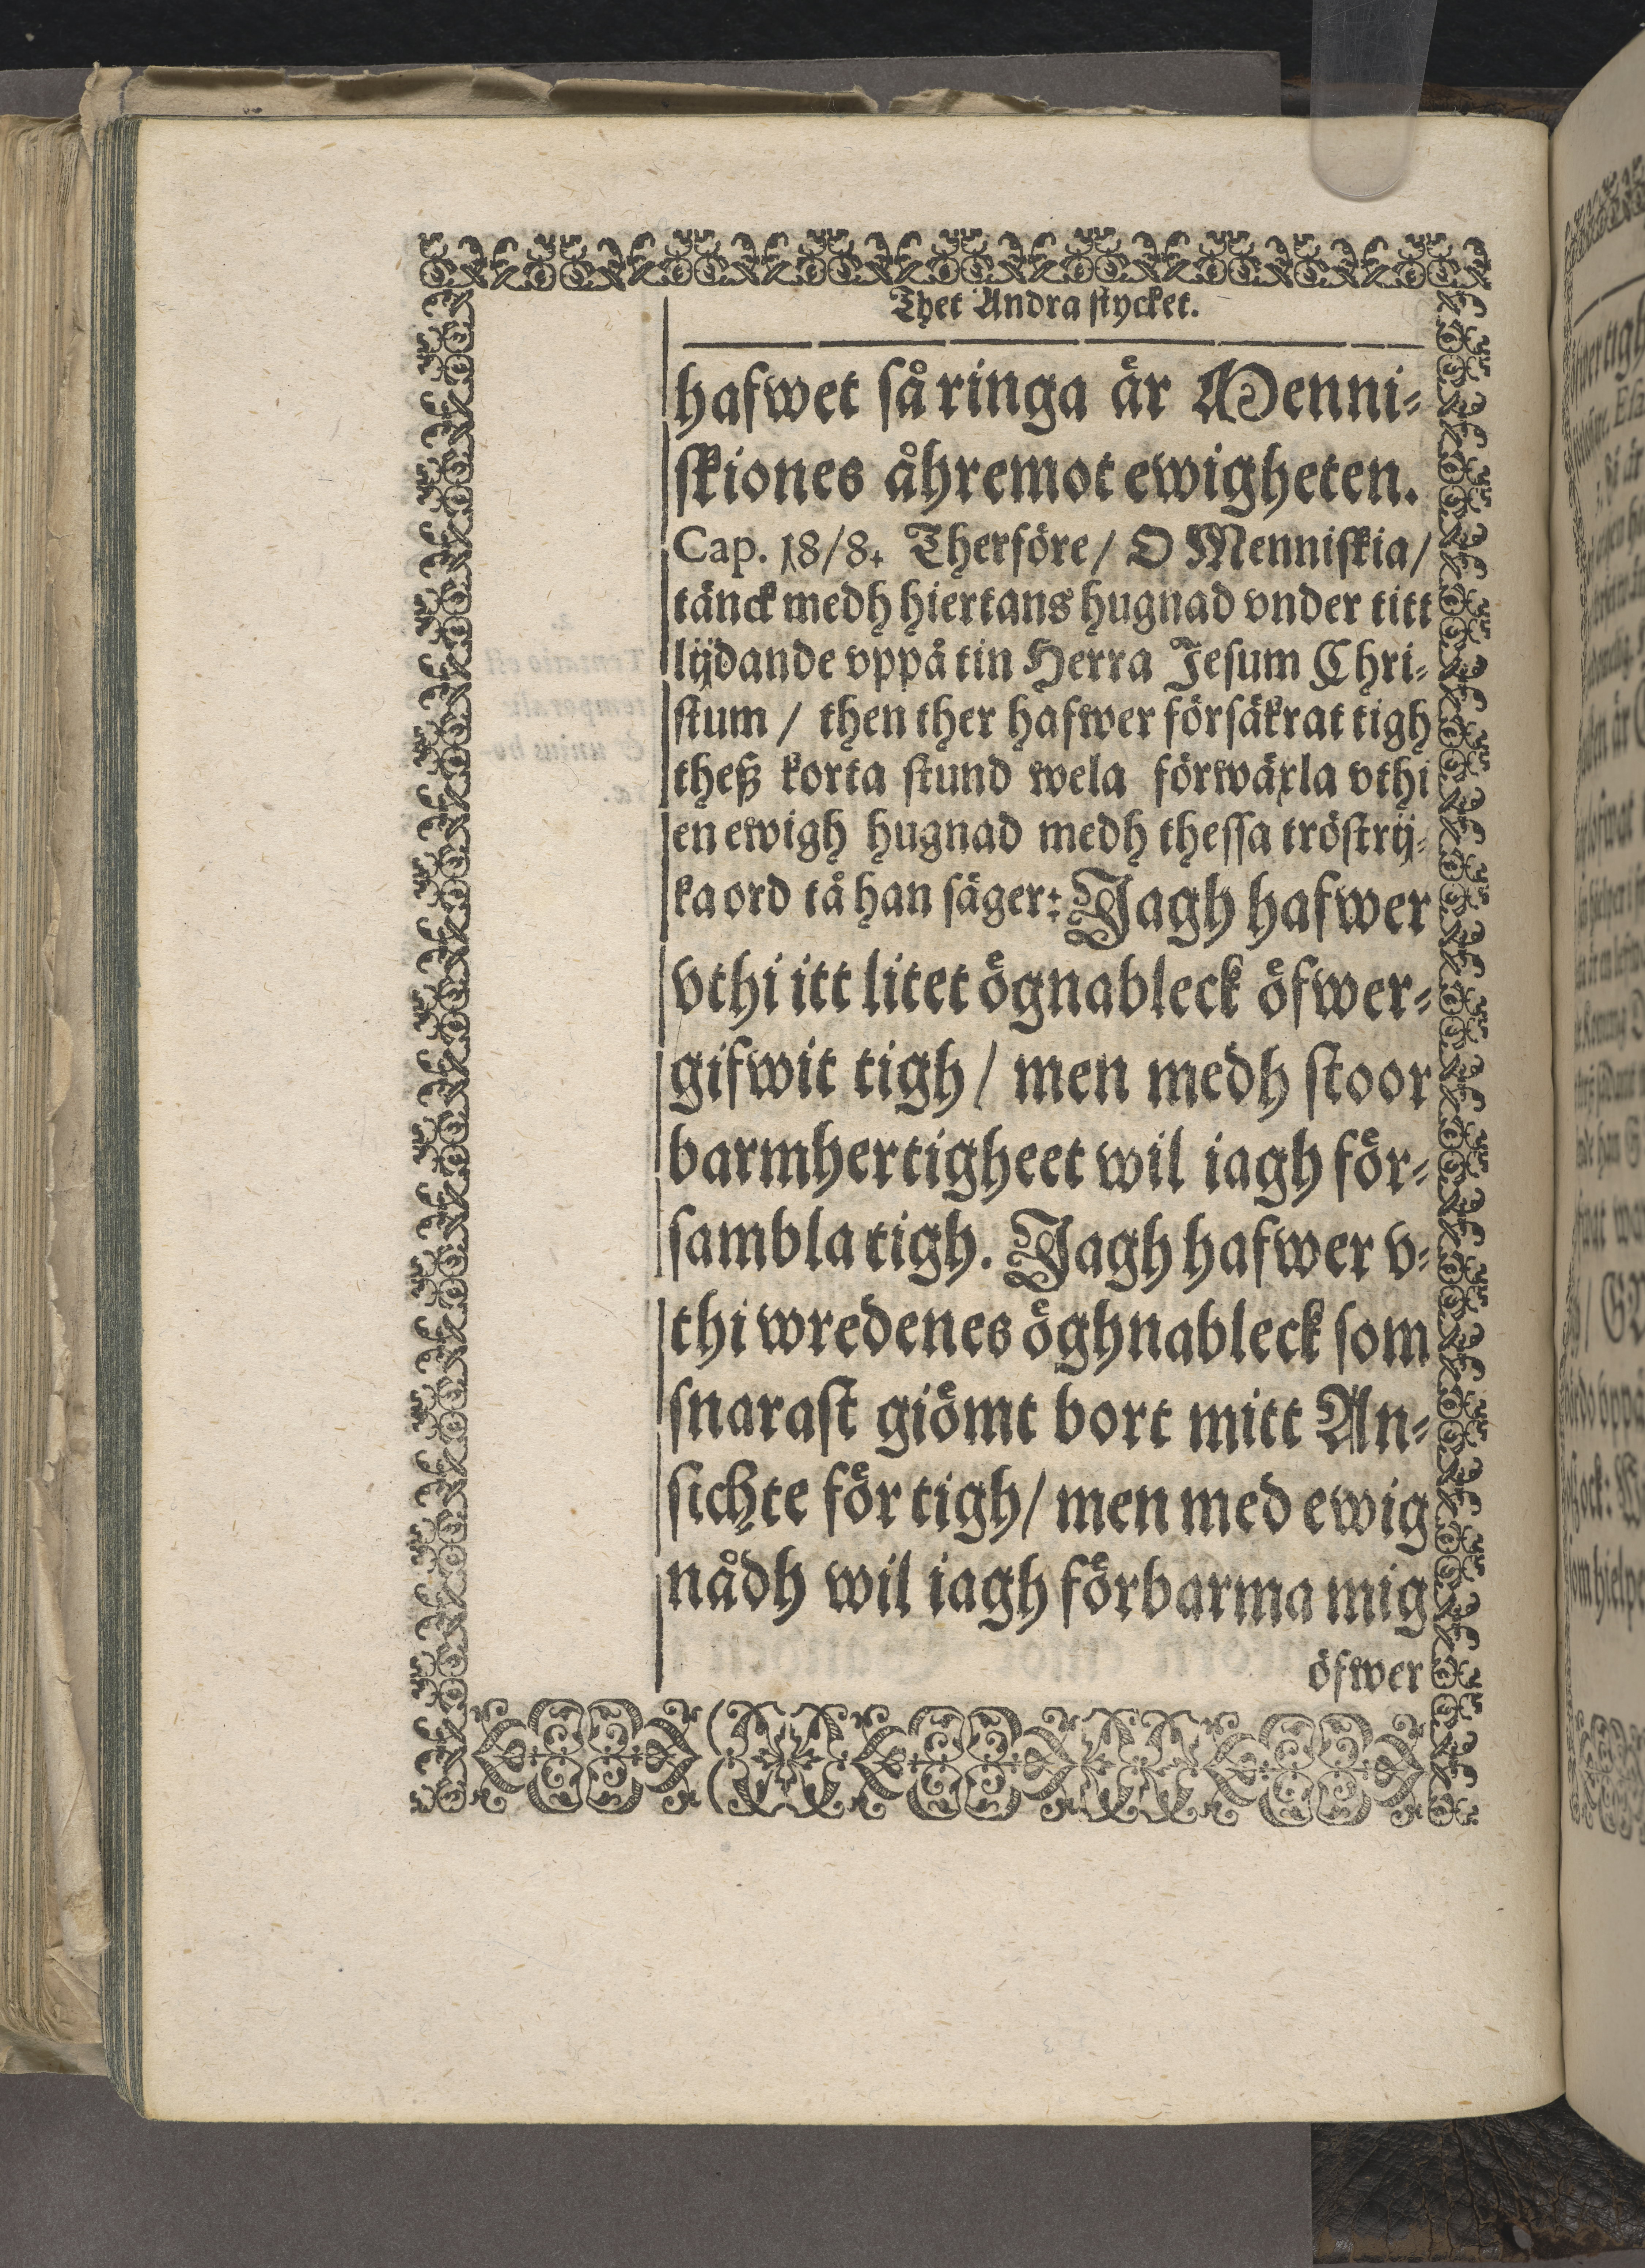 Thet Andra stycket.
hafwet så ringa är Menni-
skiones åhremot ewigheten.
Cap. 18/8. Therföre / O Menniskia /
tänck medh hiertans hugnad vnder titt
lijdande vppå tin Herra Jesum Chri-
stum / then ther hafwer försäkrat tigh
theß korta stund wela förwäxla vthi
en ewigh hugnad medh thessa tröstrij-
ka ord tå han säger: Jagh hafwer
vthi itt litet ögnableck öfwer-
gifwit tigh / men medh stoor
barmhertigheet wil iagh för-
sambla tigh. Jagh hafwer v-
thi wredenes öghnableck som
snarast giömt bort mitt An-
sichte för tigh / men med ewig
nådh wil iagh förbarma mig
öfwer